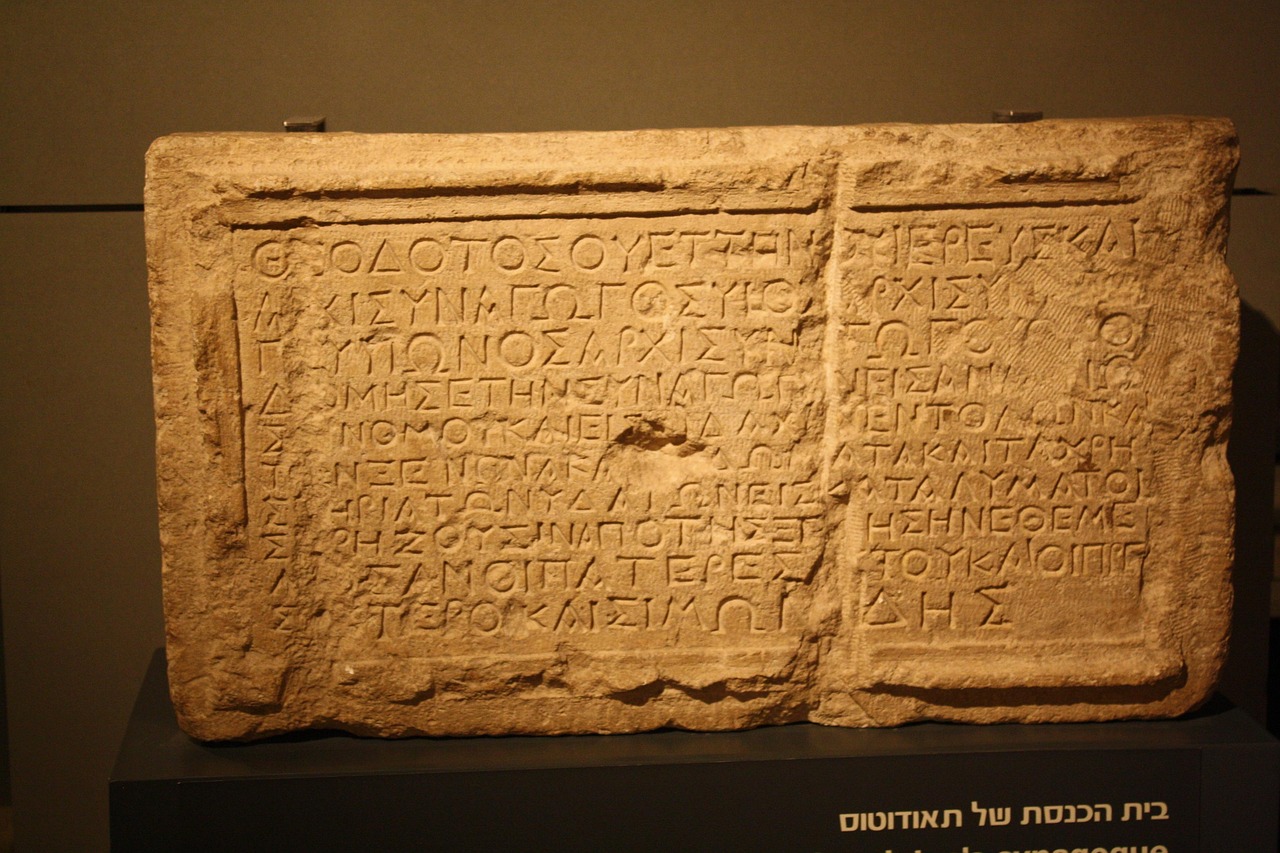 ΘΕΟΔΟΤΟΣΟΥΕΤΤΗΝΟΥΙΕΡΕΥΣΚΑΙ
ΑΡΧΙΣΥΝΑΓΩΓΟΣΥΙΟΣΑΡΧΙΣΥΝ
ΓΟΥΥΙΩΝΟΣΑΡΧΙΣΥΝΑΓΩΓΟΥΩΚΟ
ΔΟΜΗΣΕΤΗΝΣΥΝΑΓΩΓΗΝΕΙΣΑΝΑΓΝΩ
ΣΙΝΝΟΜΟΥΚΑΙΕΙΣΔΙΔΑΧΗΝΕΝΤΟΛΩΝΚΑΙ
ΤΟΝΞΕΝΩΝΑΚΑΙΤΑΔΩΜΑΤΑΚΑΙΤΑΧΡΗ
ΣΤΗΡΙΑΤΩΝΥΔΑΤΩΝΕΙΣΚΑΤΑΛΥΜΑΤΟΙ
ΣΧΡΗΖΟΥΣΙΝΑΠΟΤΗΣΞΕΝΗΣΗΝΕΘΕΜΕ
ΛΙΩΣΑΝΟΙΠΑΤΕΡΕΣΑΥΤΟΥΚΑΙΟΙΠΡΕ
ΣΒΥΤΕΡΟΙΚΑΙΣΙΜΩΝΙΔΗΣ
בית הכנסת של תאודוטוס
synagogue